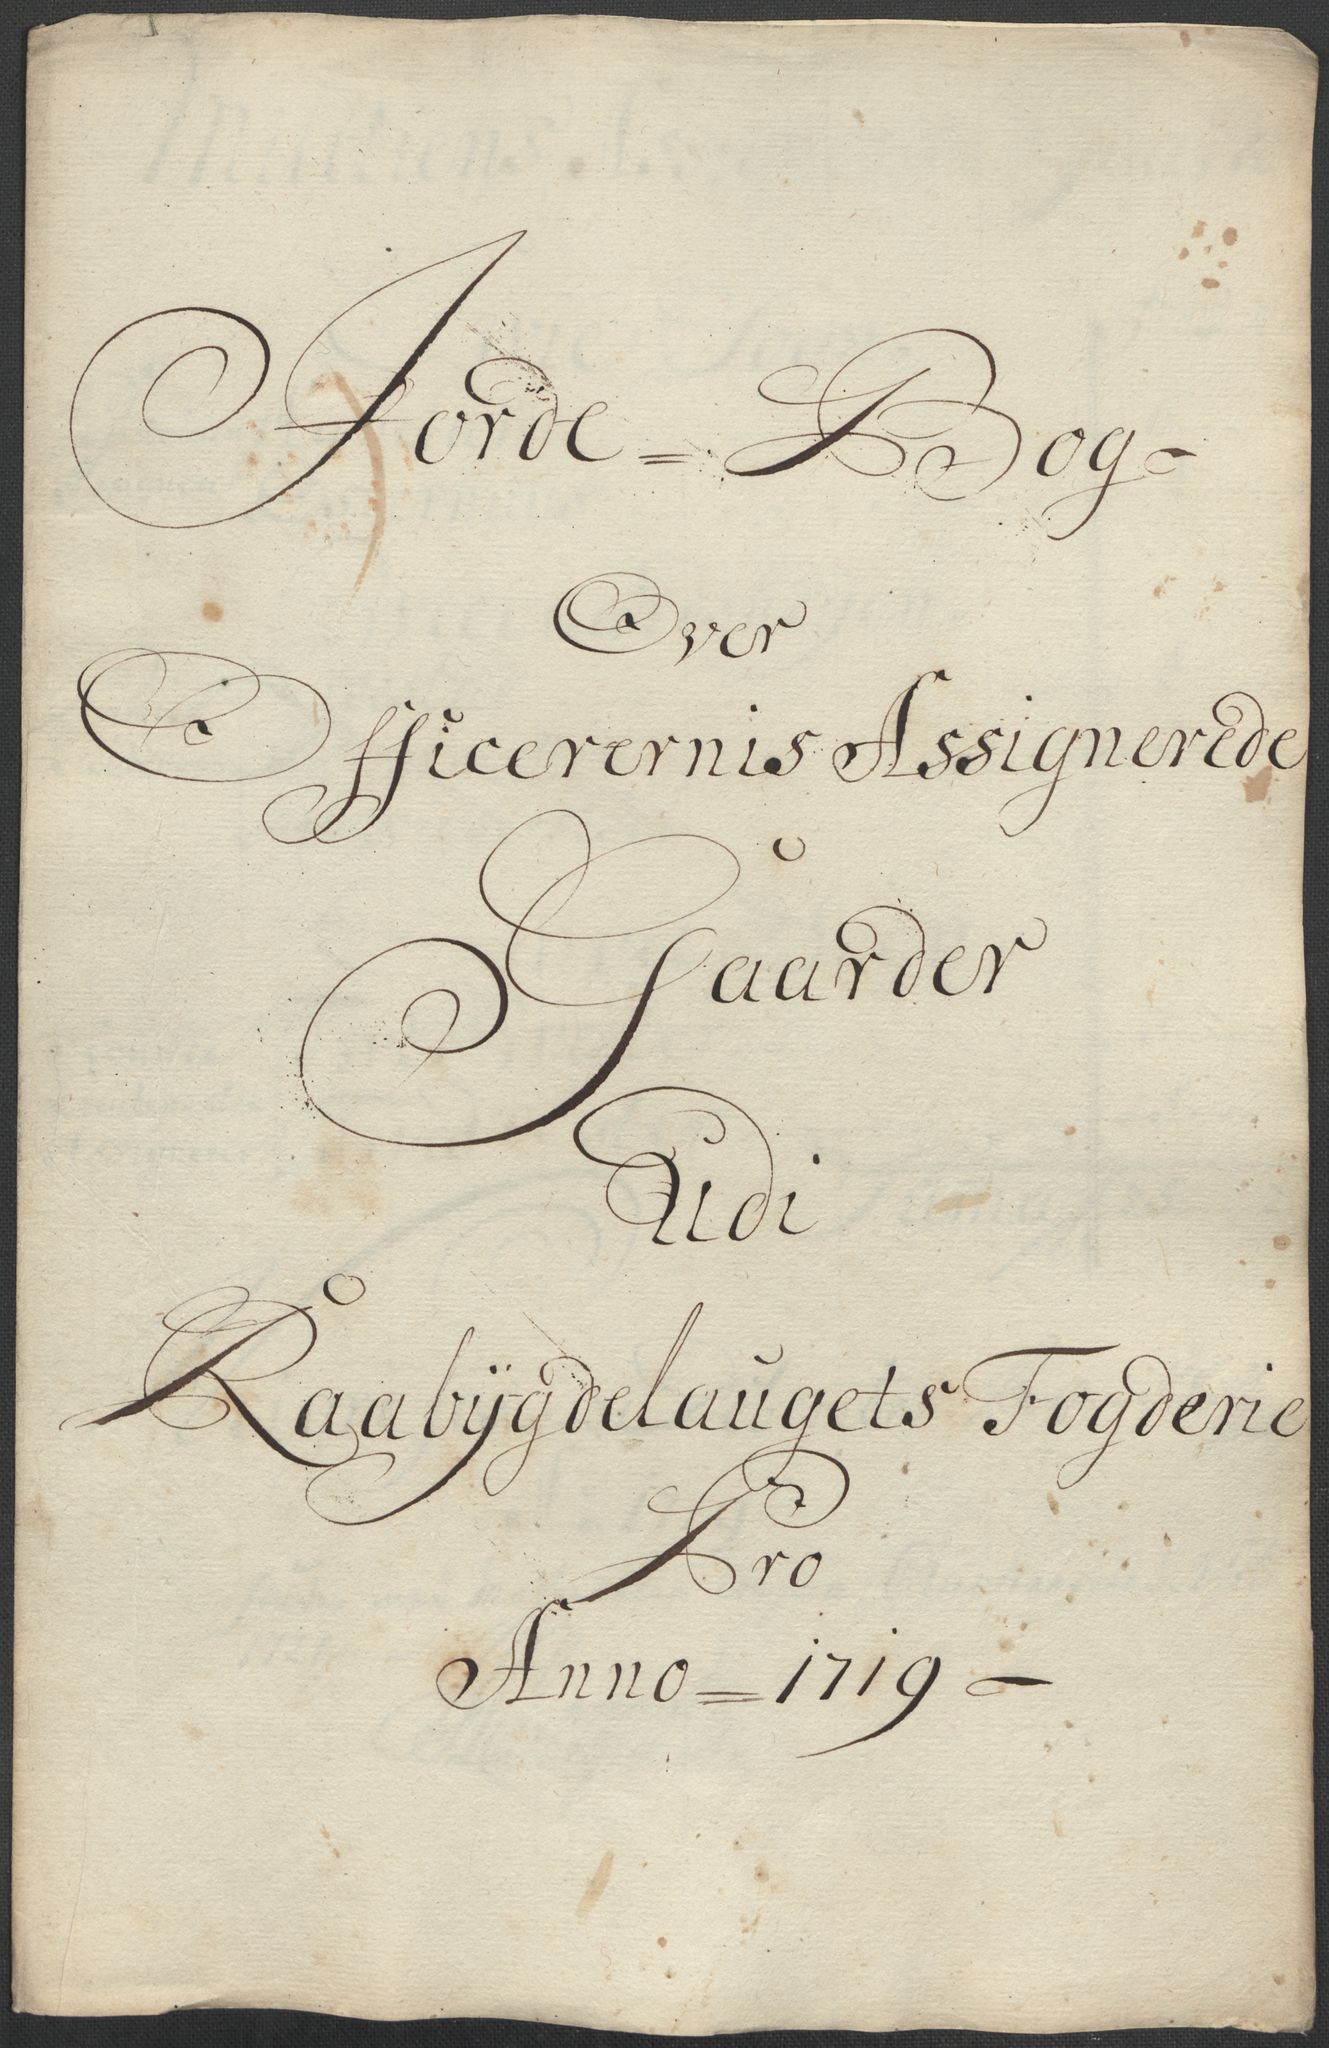 Jorde = Bog -
Over
Officerernis Assignerede
Gaarder
Udi
Raabÿgdelaugets Fogderie
Pro
Anno = 1719 -